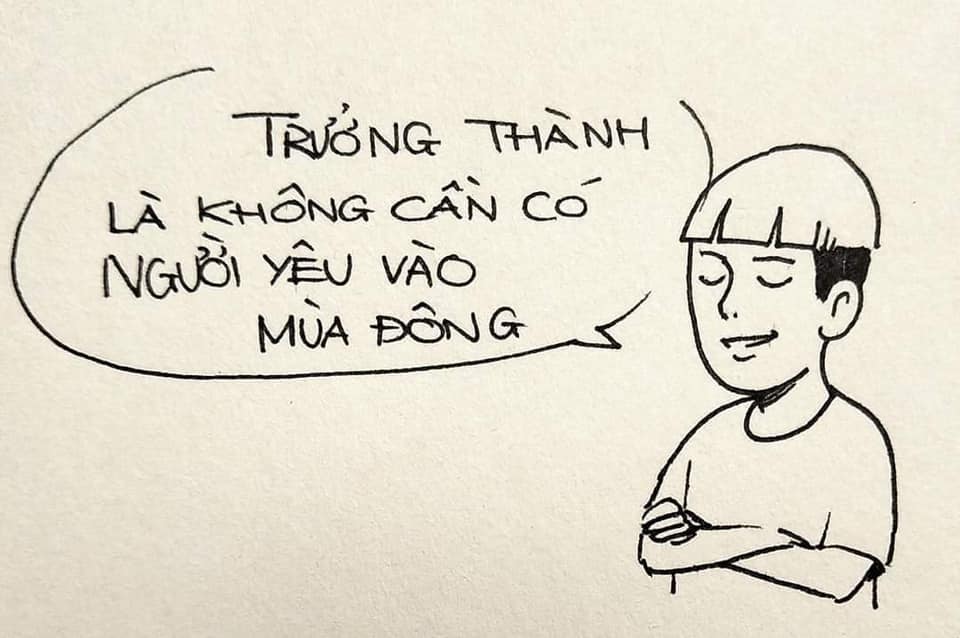 TRƯỞNG THÀNH
LÀ KHÔNG CẦN CÓ
NGƯỜI YÊU VÀO
MÙA ĐÔNG